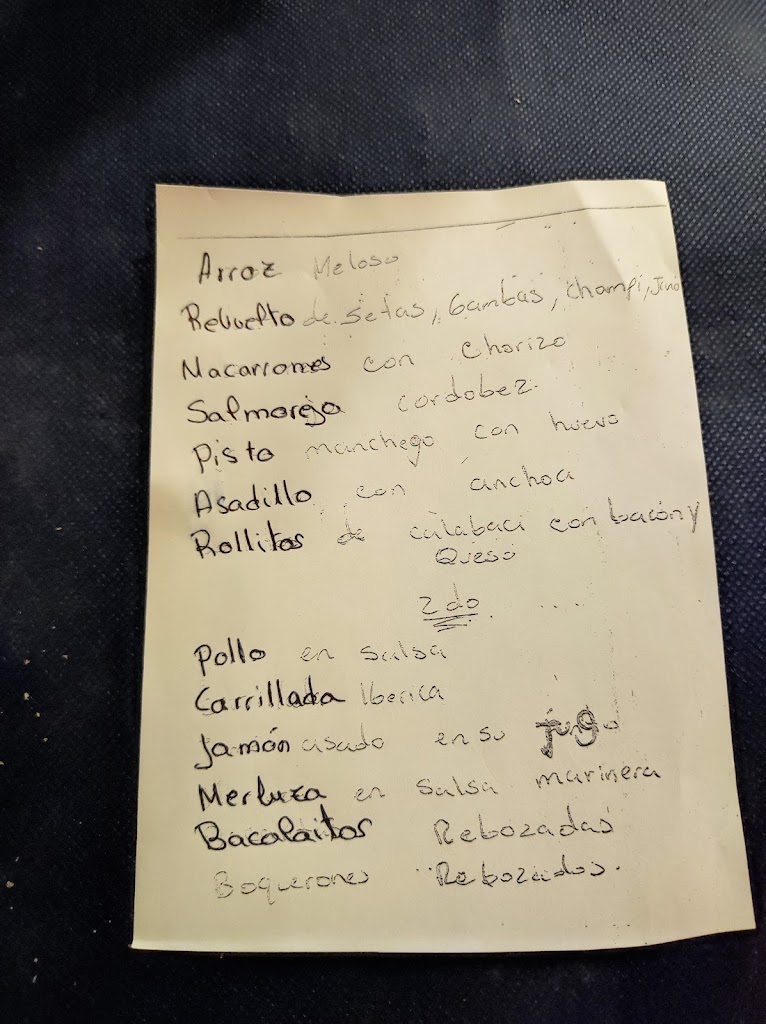 Arroz Meloso
Revuelto de setas, Gambas, Champi,
Macarrones con Chorizo
Salmorejo cordobez.
Pisto manchego con huevo
Asadillo con anchoa
Rollitos de calabaci con bacón y
Queso
2do
Pollo en salsa
Carrillada Iberica
Jamón asado en su
Merluza en salsa marinera
Bacalaitos Rebozadas
Boquerones Rebozados.